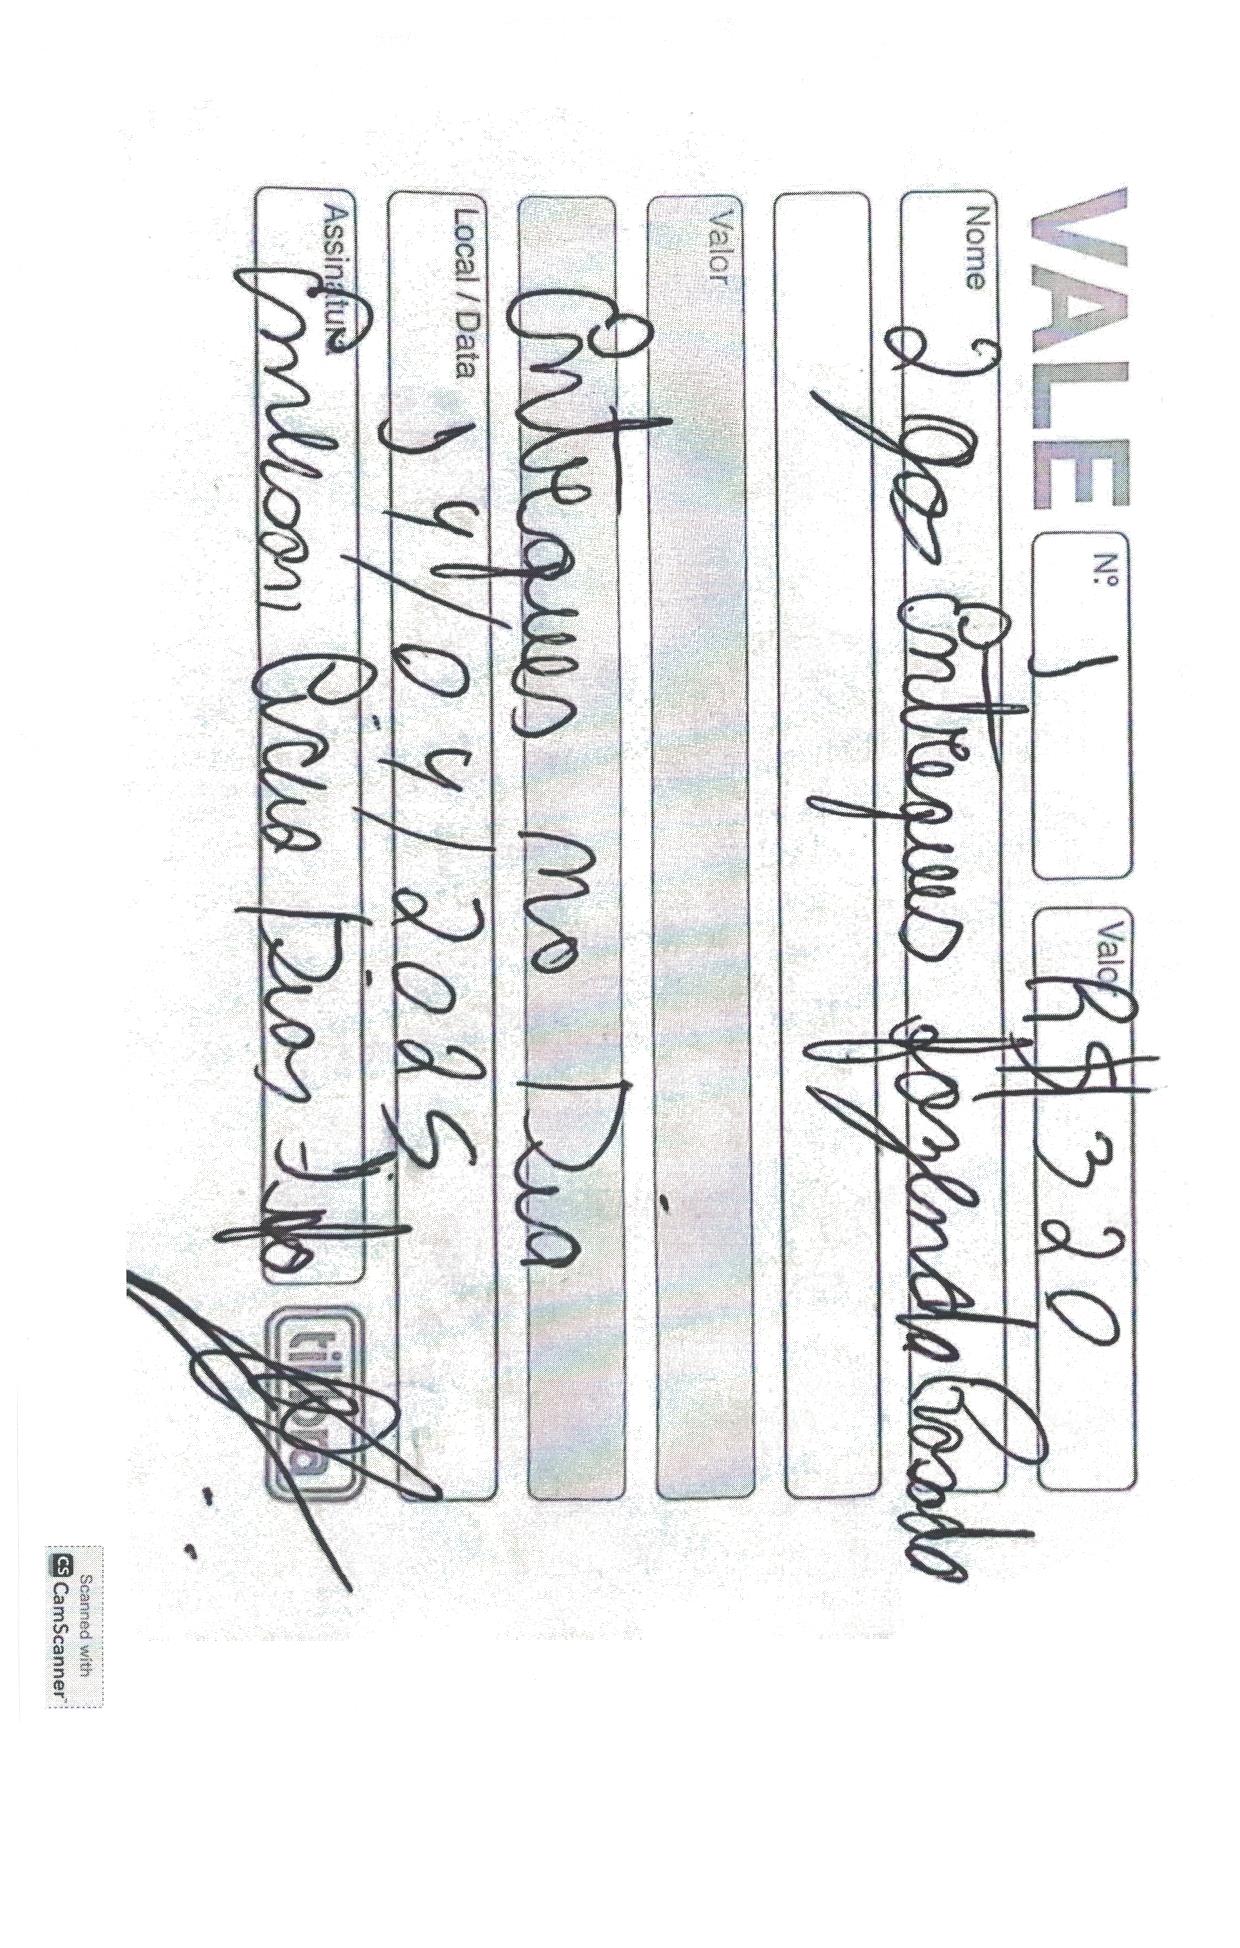 VALE Nº 1 Valor R$ 320
Nome 2 Gas Entregues fazenda
Valor
Entregues no Dia
Local / Data 14/04/2025
Assinatura Dias Filho tilibra
Scanned with
CS CamScanner